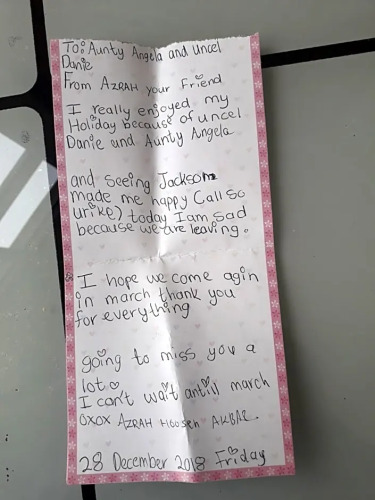 To: Aunty Angela and uncel
Danie
From AZRAH your Friend
I really enjoyed my
Holiday because of uncel
Danie and Aunty Angela
and seeing Jackson
made me happy Call so
urike) today I am sad
because we are leaving.
I hope we come agin
in march thank you
for everything
going to miss you a
lot
I can't wait antill march
OXOX AZRAH HOOSEN AKBAR
28 December 2018 Friday